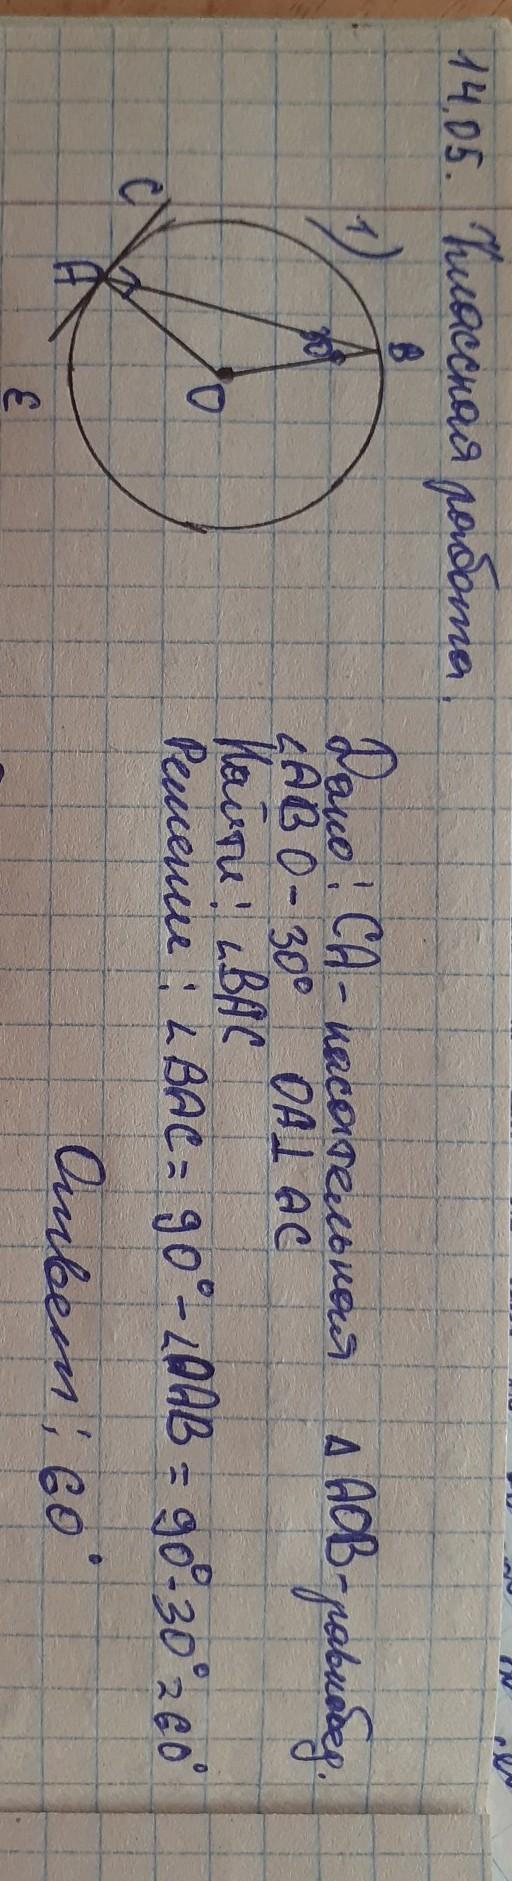 14.05. Классная работа.
1)
B
30°
O
A
C
E
Дано: CA - касательная △ AOB - равнобед.
∠ABO - 30° OA⊥AC
Найти: ∠BAC
Решение: ∠BAC = 90° - ∠OAB = 90° - 30° = 60°
Ответ: 60°